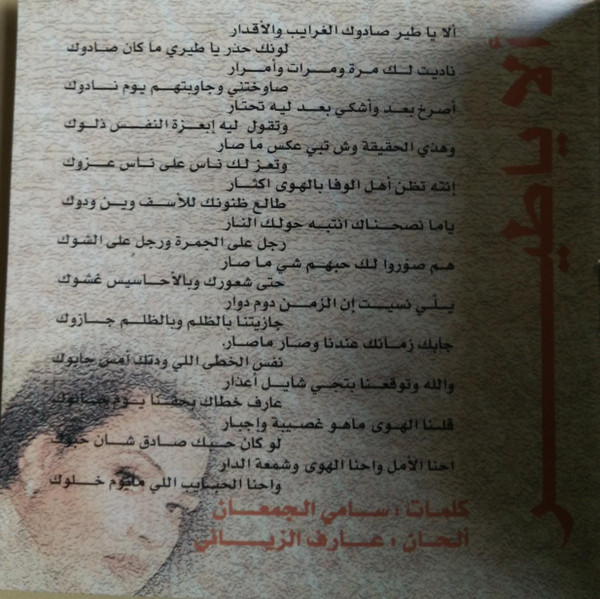 ألا يا طير
ألا يا طير صادوك الغرايب والأقدار
لونك حذر يا طيري ما كان صادوك
ناديت لك مرة ومرات وأمرار
صاوختني وجاوبتهم يوم نادوك
أصرخ بعد وأشكي بعد ليه تحتار
وتقول ليه إبعزة النفس ذلوك
وهذي الحقيقة وش تبي عكس ما صار
وتعز لك ناس على ناس عزوك
إنته تظن أهل الوفا بالهوى اكثار
طالع ظنونك للأسف وين ودوك
ياما نصحناك انتبه حولك النار
رجل على الجمرة ورجل على الشوك
هم صوروا لك حبهم شي ما صار
حتى شعورك وبالأحاسيس غشوك
يلّي نسيت إن الزمن دوم دوار
جازيتنا بالظلم وبالظلم جازوك
جابك زمانك عندنا وصار ماصار
نفس الخطى اللي ودتك أمس جابوك
والله وتوقعنا بتجي شايل أعذار
عارف خطاك بحقنا يوم
قلنا الهوى ماهو غصيبة وإجبار
لو كان حبك صادق شان حبوك
احنا الأمل واحنا الهوى وشمعة الدار
واحنا الحبايب اللي مابوم خلوك
كلمات : سامي الجمعان
ألحان : عارف الزياني